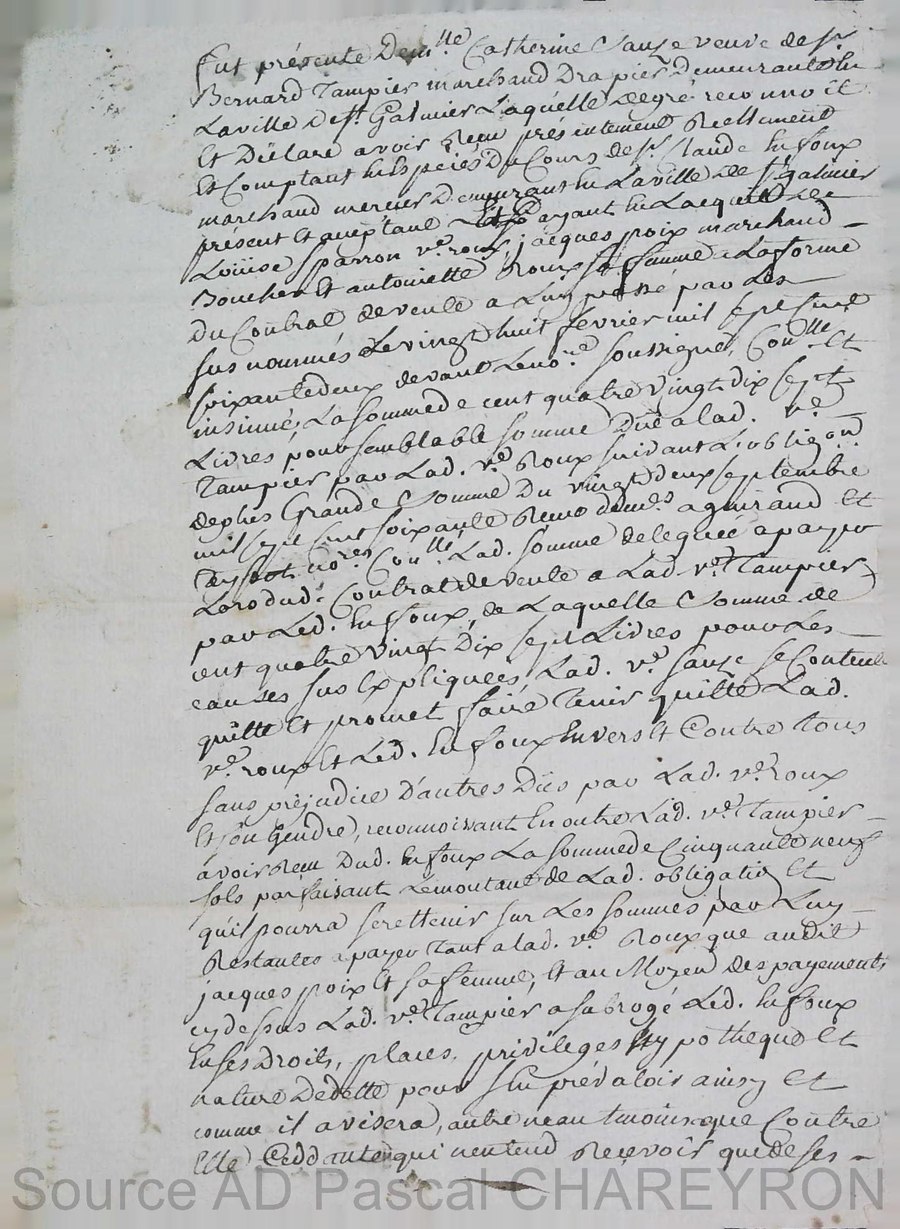 fut présente Dem.lle Catherine Sauze veuve de sr
Bernard Tampier marchand Drapier Demeurant En
Laville De st. Galmier Laquelle degré reconnoit
Et Déclare avoir Reçu présentement Réellement
Et Comptant En Espèces Du Cours de sr. Claude Enfoux
marchand mercier Demeurant En Laville de st. galmier
présent Et aceptant ayant En Lacquit de
Louise parron ve. roux, jacques poix marchand
Boucher Et antoinette Roux sa femme a La forme
Du Contrat de vente a Luy passé par Les
sus nommés Le vingt huit fevrier mil sept Cent
soixante deux devant Le no.re soussigné, Con.llé Et
insinué, La somme de cent quatre vingt Dix sept
Livres pour semblable somme Düe a lad. ve.
Tampier par Lad. ve. Roux suivant L'obligaon.
de plus Grande Somme Du vingt deux septembre
mil sept Cent soixante Reçue de mes. aguiraud Et
no.res Con.llé Lad. somme deleguée a payer
Contrat de vente a Lad. ve. Tampier
par Led. Enfoux, de Laquelle Somme de
cent quatre vingt Dix sept Livres pour Les
causes sus Expliquées Lad. ve. sauze se Contente
quitte Et promet faire Tenir quitte Lad.
ve. roux Et Led. Enfoux Envers Et Contre Tous
sans préjudice D'autres Dûs par Lad. ve. roux
Et son Gendre, reconnoissant En outre Lad. ve. Tampier
avoir Reçu Dud. Enfoux La somme de Cinquante neuf
sols parfaisant Le montant de Lad. obligatio Et
qu'il pourra se rettenir sur Les sommes par Luy
Restantes a payer Tant a lad. ve. Roux que audit
jacques poix Et sa femme, Et au Moyen des payements
cy dessus Lad. ve. Tampier a subrogé Led. Enfoux
En ses Droits, places, privileges hypotheque Et
nature De dette pour s'En prévaloir ainsy Et
comme il avisera, autre neantmoins que Contre
Elle Ceddante qui n'entend Recevoir que de ses
Source AD Pascal CHAREYRON